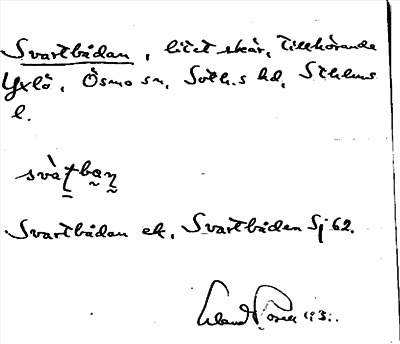 Svartbådan, litet skär, tillhörande
Yxlö, Ösmo sn, Soth.s hd, Sthlms
l.
svàtban
Svartbådan ek, Svartbåden Sj 62.